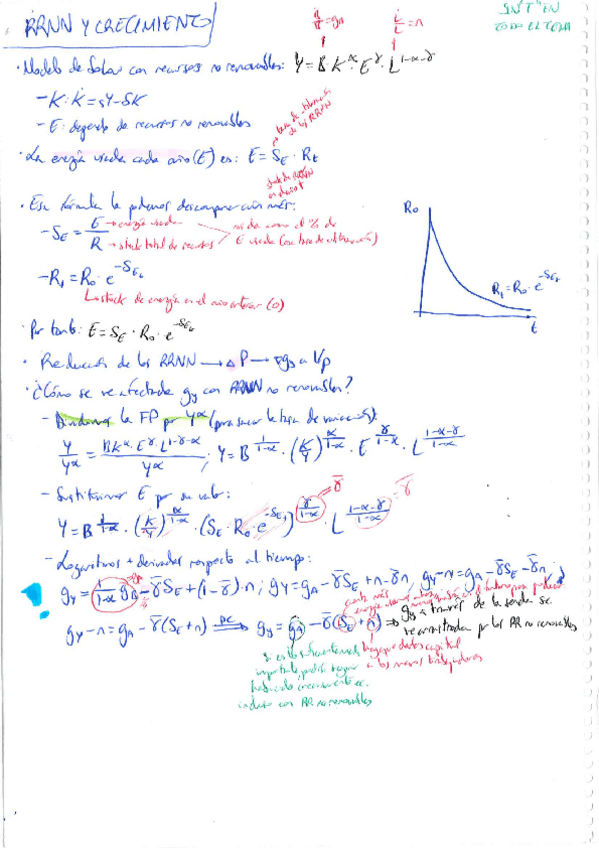 RRNN Y CRECIMIENTO
Ḃ/B = gB
L̇/L = n
SN TºEN
TODO EL TEMA
· Modelo de Solow con recursos no renovables: Y = B·K^α·E^γ·L^(1-α-γ)
- K: K̇ = sY - δK
- E: depende de recursos no renovables
→ tasa de utilización de los RRNN
· La energía usada cada año (E) es: E = S_E · R_t
stock de RRNN en el año t
· Esa fórmula la podemos descomponer aún más:
- S_E = E/R
E → energía usada
R → stock total de recursos
mide como el % de E usada (como tasa de utilización)
- R_t = R_0 · e^(-S_E t)
↳ stock de energía en el año anterior (0)
R_0
R_t = R_0 · e^(-S_E t)
t
· Por tanto: E = S_E · R_0 · e^(-S_E t)
· Reducción de los RRNN → ΔP → ∇gy a l/p
· ¿Cómo se ve afectada gy con RRNN no renovables?
- Dividimos la FP por Y^α (para sacar la tasa de variación):
Y/Y^α = BK^α·E^γ·L^(1-γ-α)/Y^α ; Y = B^(1/(1-α)) · (K/Y)^(α/(1-α)) · E^(γ/(1-α)) · L^((1-α-γ)/(1-α))
- Sustituimos E por su valor:
Y = B^(1/(1-α)) · (K/Y)^(α/(1-α)) · (S_E · R_0 · e^(-S_E t))^(γ/(1-α)) · L^((1-α-γ)/(1-α))
- Logaritmos + derivadas respecto al tiempo:
gY = 1/(1-α) gB - γ̄S_E + (1-γ̄)·n ; gY = gA - γ̄S_E + n - γ̄n ; gY - n = gA - γ̄S_E - γ̄n ;
gY - n = gA - γ̄(S_E + n) ⇒ gy = gA - γ̄(S_E + n) ⇒ gy a través de la senda se ve restringida por los RR no renovables
hay que dotar capital a los nuevos trabajadores
si es lo suficientemente importante, podría seguir habiendo crecimiento ec. incluso con RR no renovables